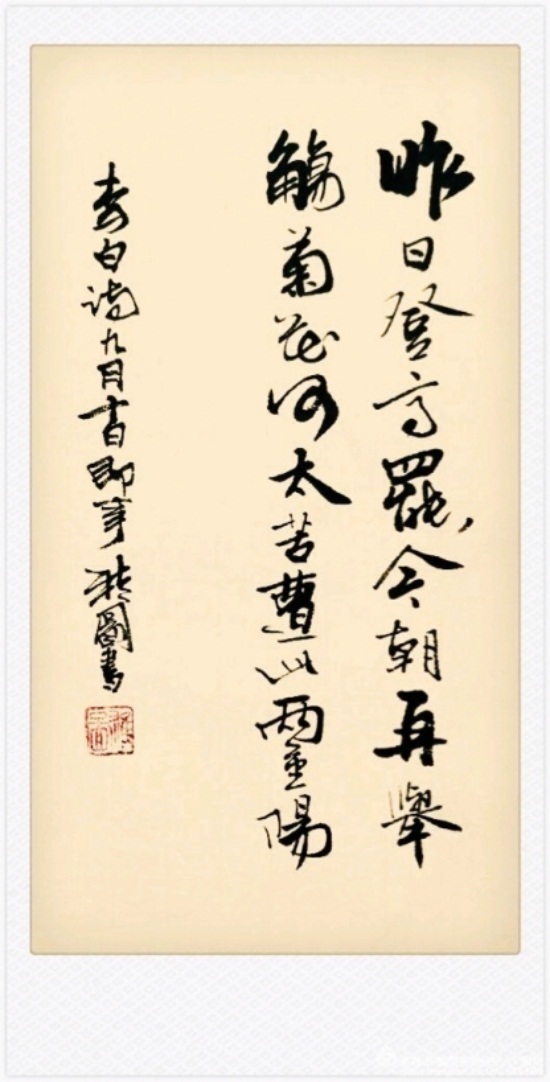 昨日登高罷今朝再舉
觴菊花何太苦遭此兩重陽
李白詩九月十日即事 圖書